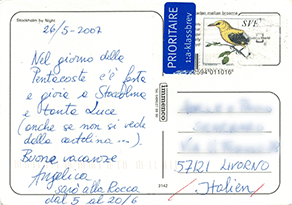 Stockholm by Night
26/5-2007
Nel giorno della
Pentecoste c'è festa
e gioia a Stoccolma e
tanta Luce
(anche se non si vede
della cartolina ...).
Buone vacanze
Angelica
sarò alla Rocca
dal 5 al 20/6
PRIORITAIRE
1:a-klassbrev
SVE
2594011016
57121 LIVORNO
Italien
3142